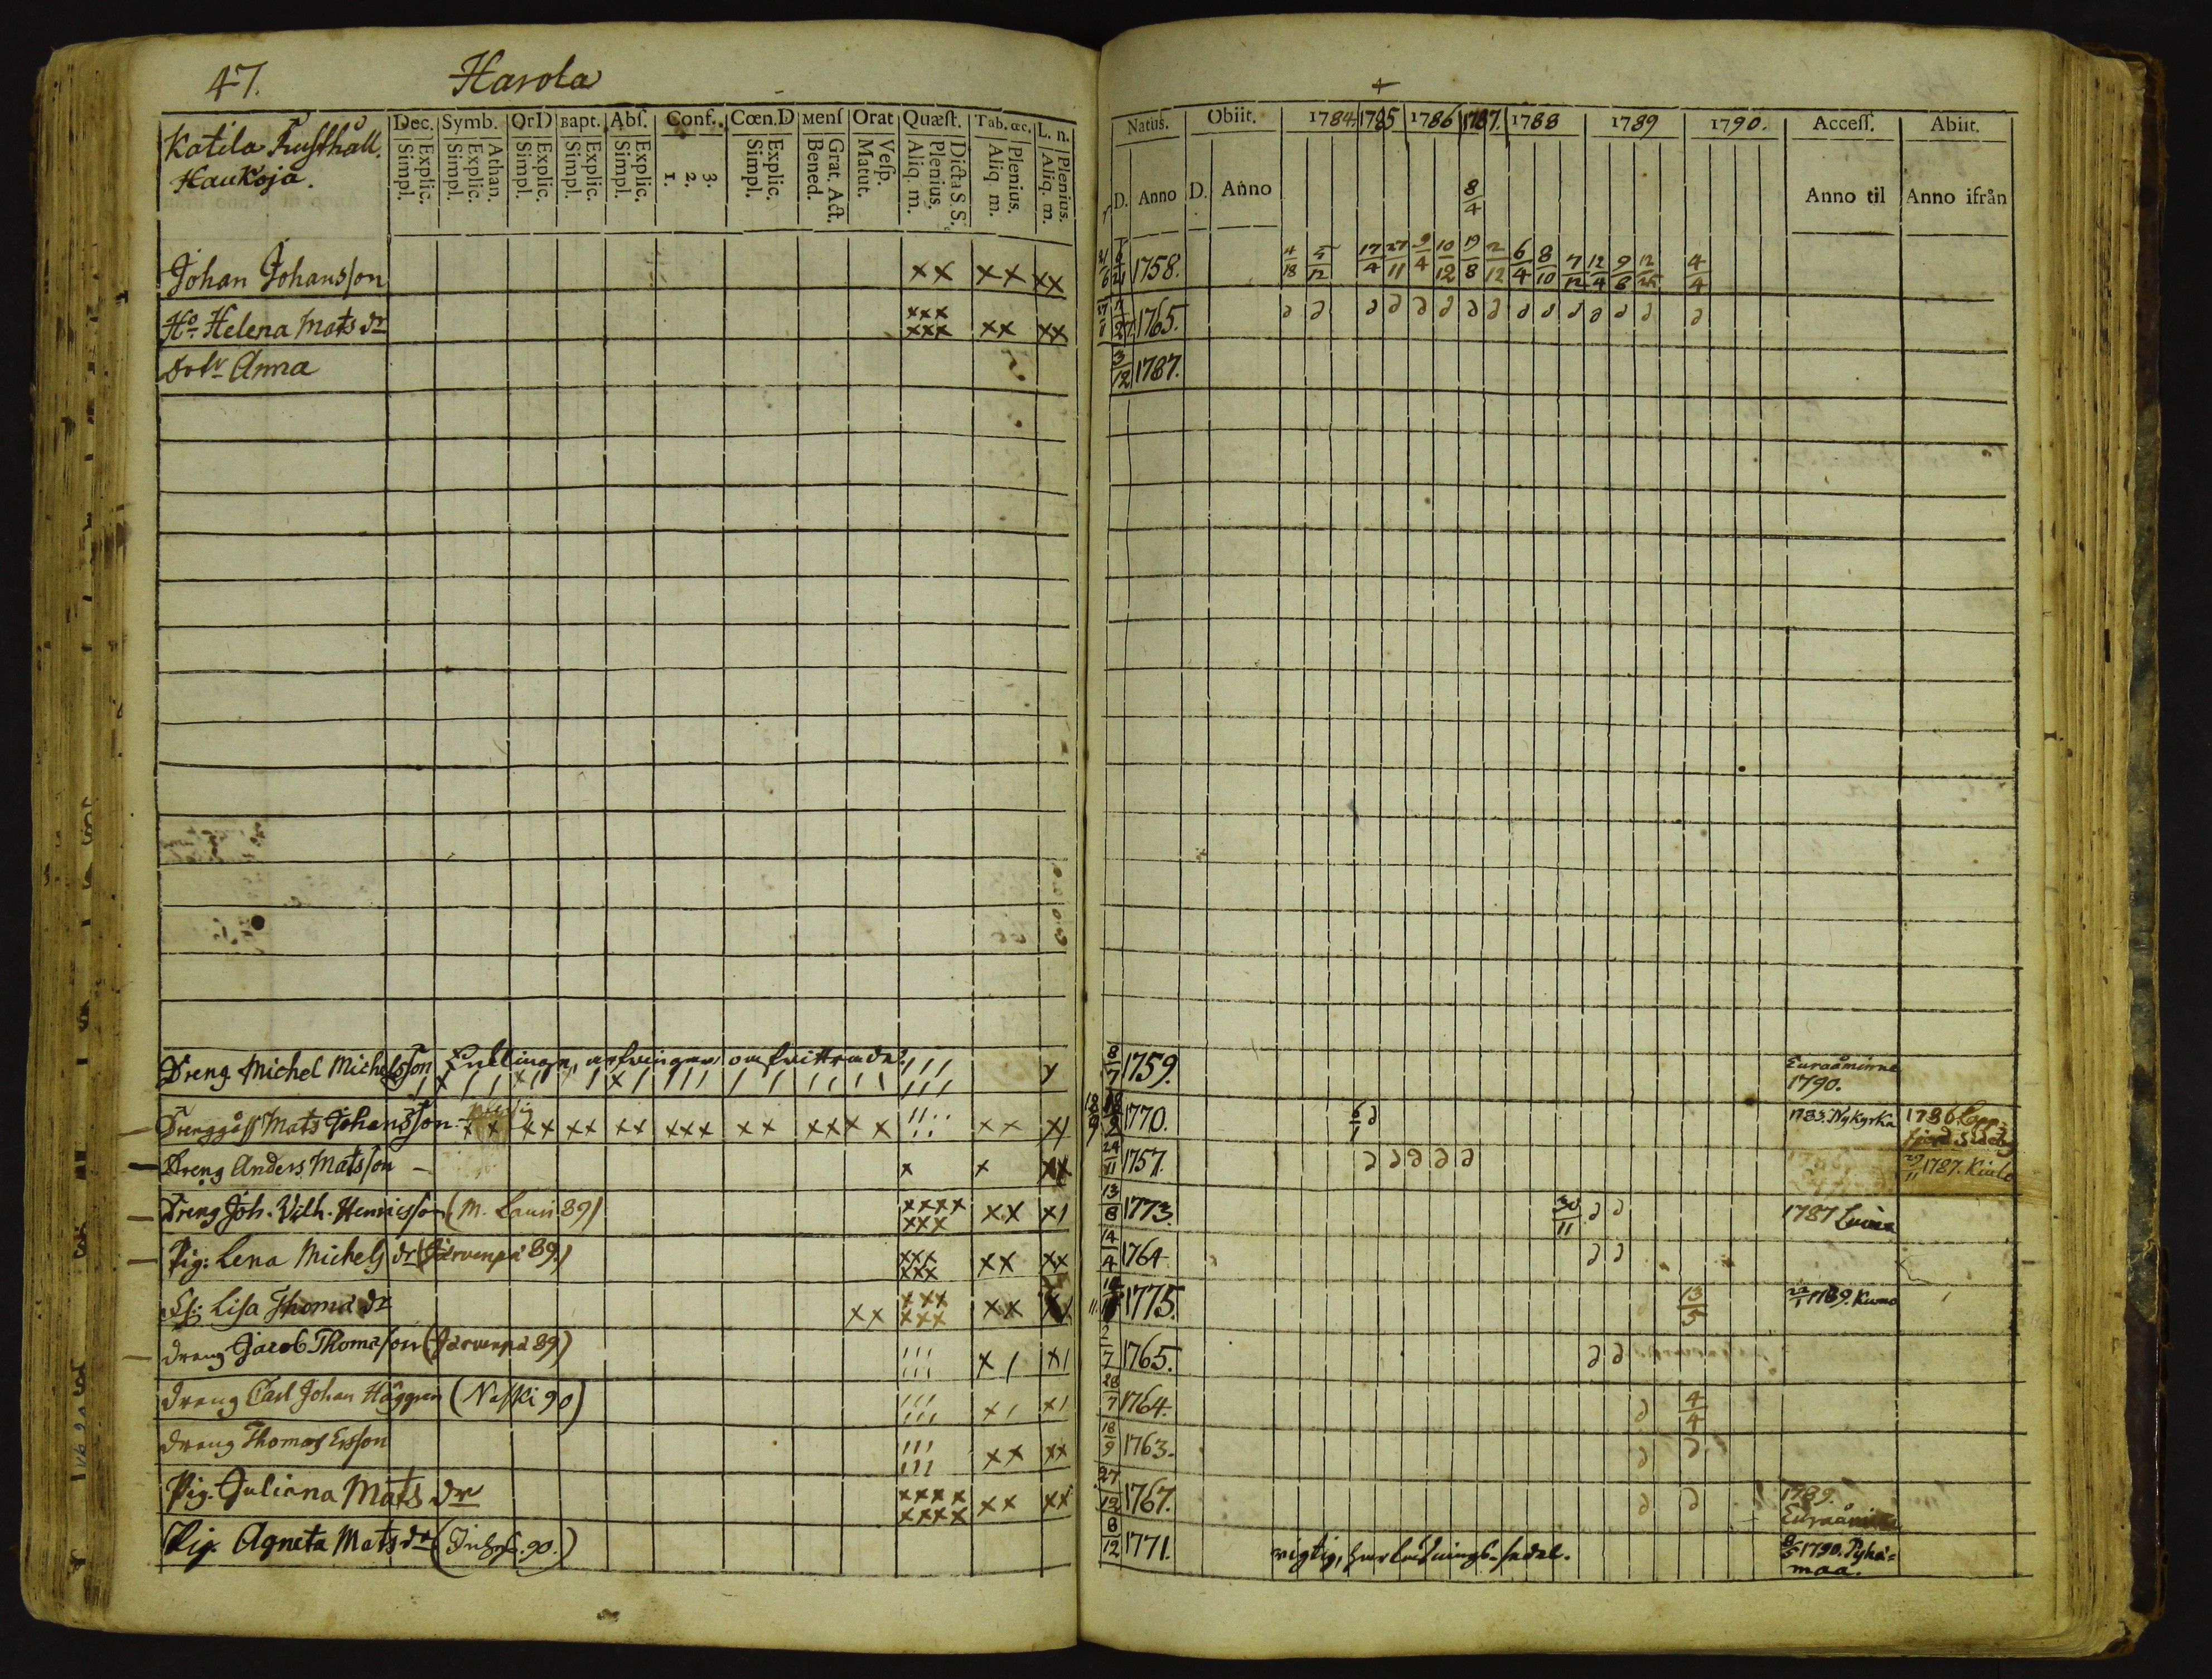 47. Harola
Katila Rusthåll.
Haukoja.
Dec. Symb. OrD Bapt. Abſ. Conf. Cœn.D Menſ Orat Quæſt. Tab.œc. L. n.
Explic. Simpl. Athan. Explic. Simpl. Explic. Simpl. Explic. Simpl. Explic. Simpl. 1. 2. 3. Explic. Simpl. Grat. Act. Bened. Veſp. Matut. Dicta S S. Plenius. Aliq. m. Plenius. Aliq. m. Plenius. Aliq. m.
Natus. Obiit. 1784. 1785 1786 1787. 1788 1789 1790. Acceſſ. Abiit.
D. Anno D. Anno 8/4 Anno til Anno ifrån
Johan Johansson xx xx xx 1758. 4/18 5/12 17/4 27/11 9/4 10/12 19/8 2/12 6/4 8/10 7/12 12/4 9/8 4/4
Ho Helena Mats dr xxx xxx xx xx 1765.
Dotr Anna 3/12 1787.
Dreng Michel Michelsson 8/7 1759. Euraåminne 1790.
Mats Johansson xx xx xx xx xxx xx xxx x xx x/ 18/9 1770. 6/1 1783. Nykyrka 1786
Dreng Anders Matsson x x xx 24/11 1757. 29/11 1787. Kiulo
Dreng Joh. Vilh. Henricsson (M. Lauri 89) xxxx xxx xx x/ 13/8 1773. 30/11 1787
Pig: Lena Michels dr (Järvenpä 89.) xxx xxx xx xx 14/4 1764
Lisa Thoma dr xx xxx xxx xx xx 1775. 13/5 22/1 1789. Kumo
dreng Jacob Thomasson (Järvenpä 89) /// /// x/ x/ 2/7 1765.
dreng Carl Johan Häggren (Naski 90) /// /// x/ x/ 28/7 1764. 4/4
dreng Thomas Ersson /// /// xx xx 18/9 1763.
Pig. Juliana Mats dr xxxx xxxx xx xx 27/12 1767. 1789. Euraåminne
Pig. Agneta Mats dr ( 90.) 8/12 1771. 8/5 1790. Pyhä=
maa.